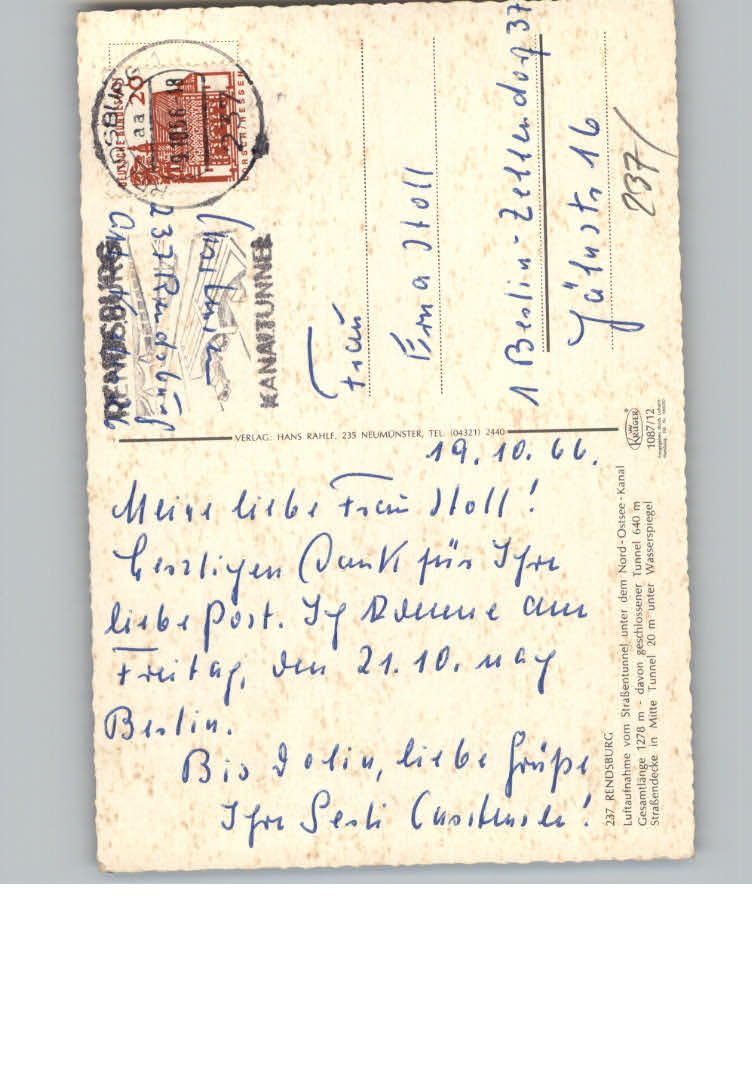 19.10.66.
Meine liebe Frau Stoll!
Herzlichen Dank für Ihre
liebe Post. Ich komme am
Freitag, den 21.10. nach
Berlin.
Bis dahin, liebe Grüße
Ihre
Frau
Erna Stoll
1 Berlin-Zehlendorf 37
16
237/
237 Rendsburg
RENDSBURG
KANALTUNNEL
DEUTSCHE BUNDESPOST
20
LORSCH/HESSEN
aa
VERLAG: HANS RAHLF, 235 NEUMÜNSTER, TEL. (04321) 2440
KRÜGER
1087/12
237 RENDSBURG
Luftaufnahme vom Straßentunnel unter dem Nord-Ostsee-Kanal
Gesamtlänge 1278 m - davon geschlossener Tunnel 640 m
Straßendecke in Mitte Tunnel 20 m unter Wasserspiegel